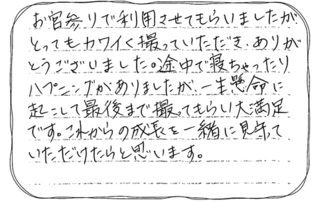 お宮参りで利用させてもらいましたが
とってもカワイく撮っていただき、ありが
とうございました。途中で寝ちゃったり
ハプニングがありましたが、一生懸命に
起こして最後まで撮ってもらい大満足
です。これからの成長を一緒に見守って
いただけたらと思います。